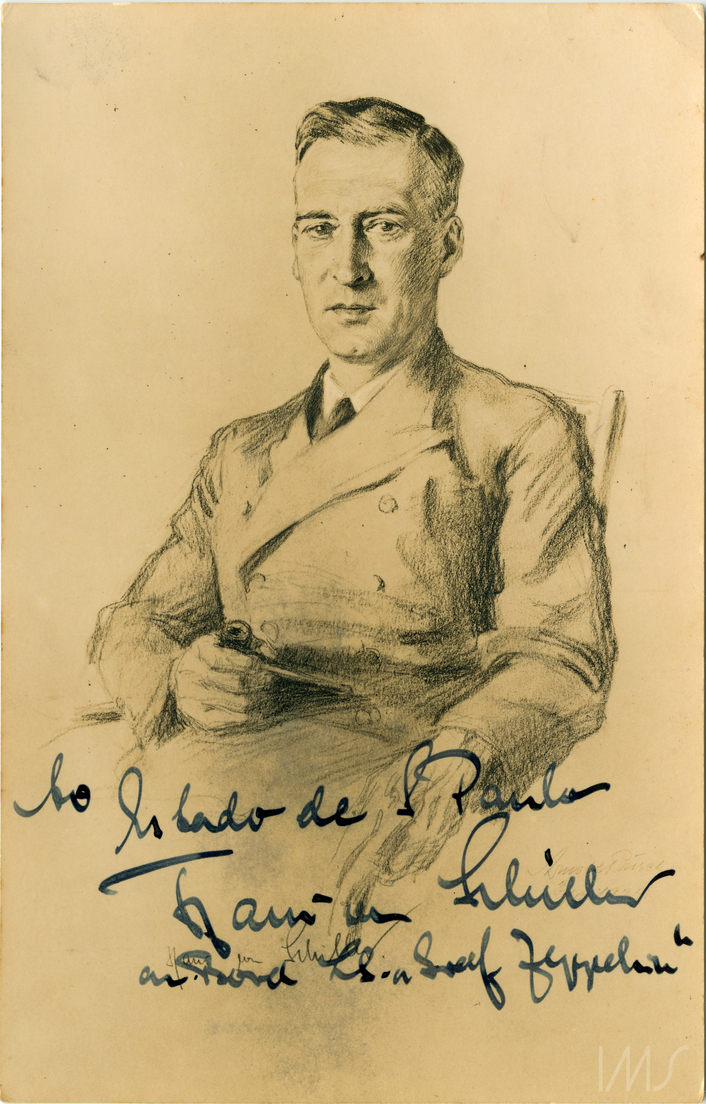 Ao Estado de S Paulo
Hans von Schiller
an Bord L.S. „Graf Zeppelin“
Hans von Schiller
IMS